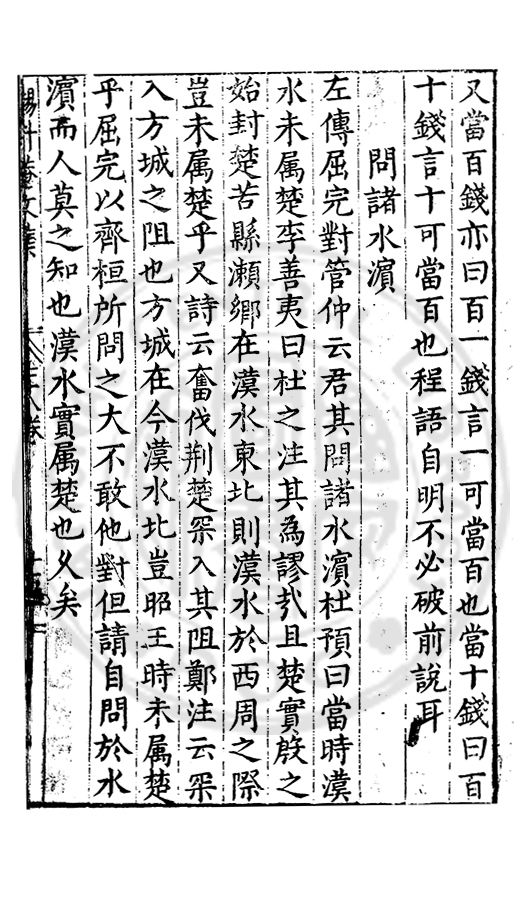 又當百錢亦曰百一錢言一可當百也當十錢曰百
十錢言十可當百也程語自明不必破前說耳
問諸水濵
左傳屈完對管仲云君其問諸水濵杜預曰當時漢
水未属楚李善夷曰杜之注其為謬㢤且楚實殷之
始封楚苦縣瀬鄉在漢水東北則漢水於西周之際
豈未属楚乎又詩云奮伐荆楚罙入其阻鄭注云罙
入方城之阻也方城在今漢水北豈昭王時未属楚
乎屈完以齊桓所問之大不敢他對但請自問於水
濵而人莫之知也漢水實属楚也乆矣